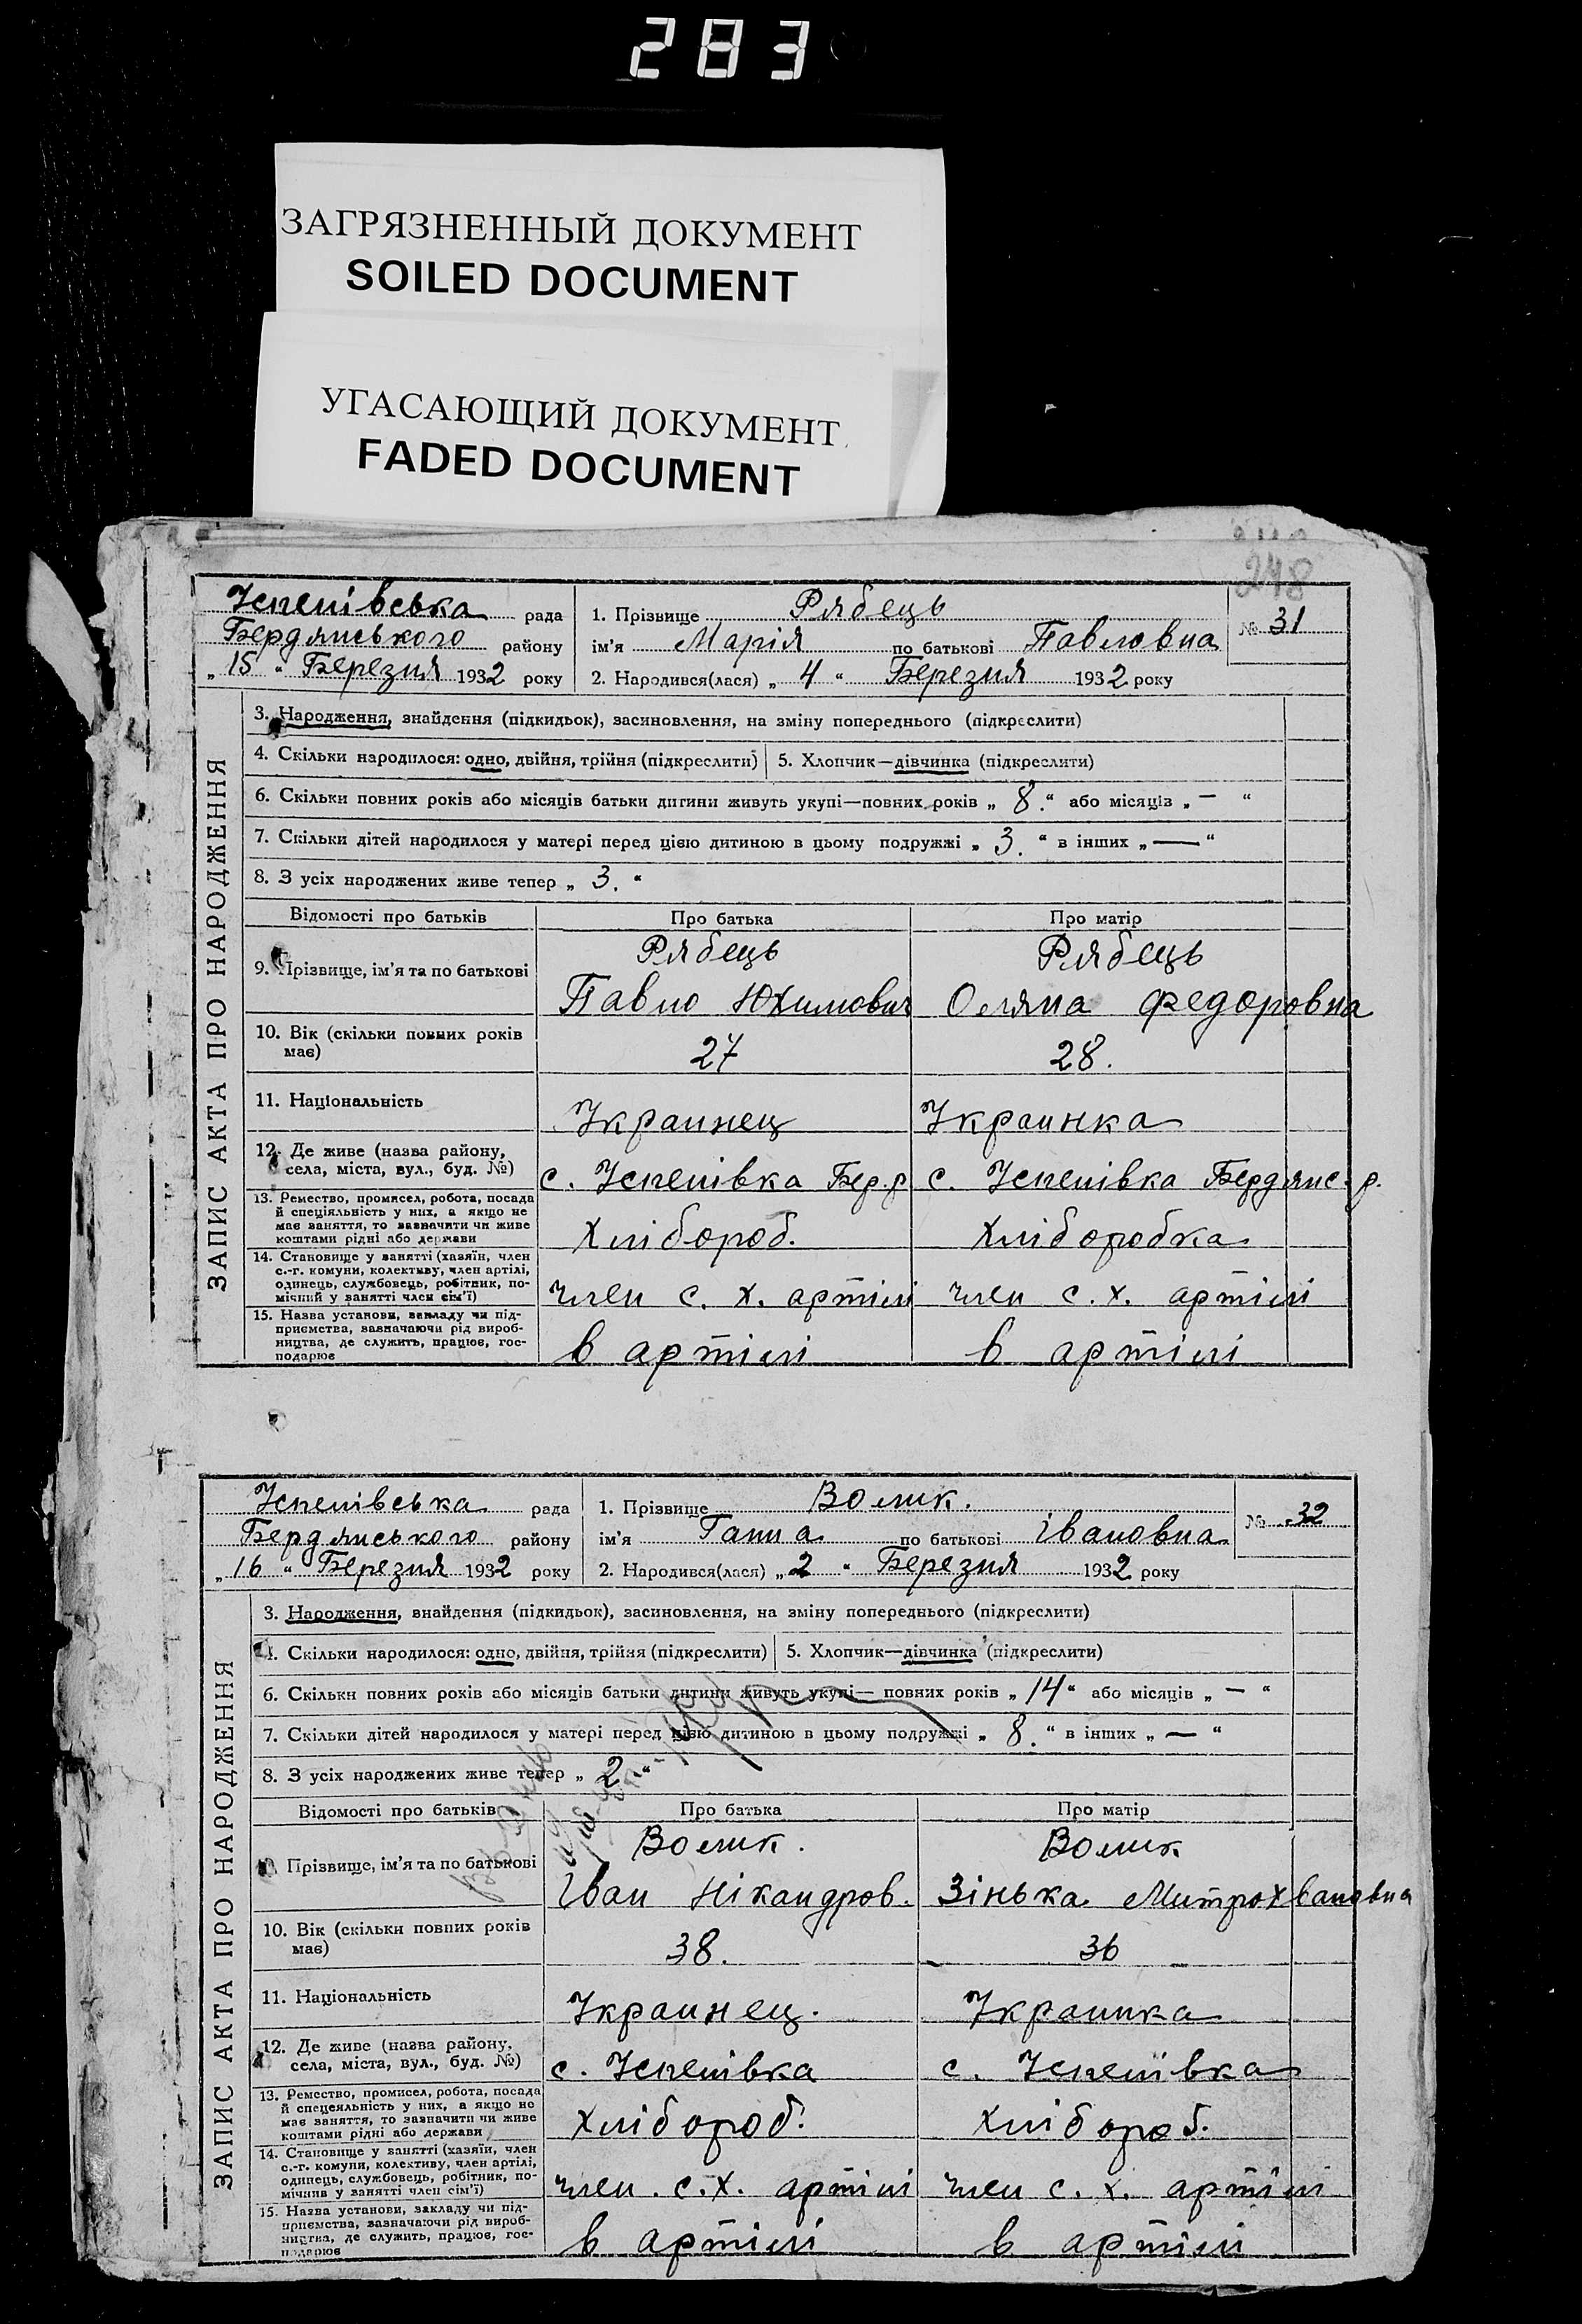 283
ЗАГРЯЗНЕННЫЙ ДОКУМЕНТ
SOILED DOCUMENT
УГАСАЮЩИЙ ДОКУМЕНТ
FADED DOCUMENT
248
Успенівська рада
Бердянського району
„15“ Березня 1932 року
1. Прізвище Рябець
ім'я Марія по батькові Павловна
2. Народився(лася) „4“ Березня 1932 року
№ 31
ЗАПИС АКТА ПРО НАРОДЖЕННЯ
3. Народження, знайдення (підкидьок), засиновлення, на зміну попереднього (підкреслити)
4. Скільки народилося: одно, двійня, трійня (підкреслити) 5. Хлопчик—дівчинка (підкреслити)
6. Скільки повних років або місяців батьки дитини живуть укупі—повних років „8.“ або місяців „—“
7. Скільки дітей народилося у матері перед цією дитиною в цьому подружжі „3.“ в інших „—“
8. З усіх народжених живе тепер „3.“
Відомості про батьків Про батька Про матір
9. Прізвище, ім'я та по батькові
Рябець Рябець
Павло Юхимович Оляна Федоровна
10. Вік (скільки повних років має) 27 28.
11. Національність Украинец Украинка
12. Де живе (назва району, села, міста, вул., буд. №) с. Успенівка Бер. р. с. Успенівка Бердянс. р.
13. Ремество, промисел, робота, посада
й спеціяльність у них, а якщо не
має заняття, то зазначити чи живе
коштами рідні або держави
Хлібороб. Хліборобка
14. Становище у занятті (хазяїн, член
с.-г. комуни, колективу, член артілі,
одинець, службовець, робітник, по-
мічний у занятті член сім'ї)
член с. х. артілі член с. х. артілі
15. Назва установи, закладу чи під-
приємства, зазначаючи рід вироб-
ництва, де служить, працює, гос-
подарює
в артілі в артілі
Успенівська рада
Бердянського району
„16“ Березня 1932 року
1. Прізвище Волик.
ім'я Ганна по батькові Івановна
2. Народився(лася) „2“ Березня 1932 року
№ 32
ЗАПИС АКТА ПРО НАРОДЖЕННЯ
3. Народження, знайдення (підкидьок), засиновлення, на зміну попереднього (підкреслити)
4. Скільки народилося: одно, двійня, трійня (підкреслити) 5. Хлопчик—дівчинка (підкреслити)
6. Скільки повних років або місяців батьки дитини живуть укупі— повних років „14“ або місяців „—“
7. Скільки дітей народилося у матері перед цією дитиною в цьому подружжі „8.“ в інших „—“
8. З усіх народжених живе тепер „2“
Відомості про батьків Про батька Про матір
Прізвище, ім'я та по батькові
Волик. Волик
Іван Нікандров. Зінька Митрохвановна
10. Вік (скільки повних років має) 38. 36
11. Національність Украинец. Украинка
12. Де живе (назва району, села, міста, вул., буд. №) с. Успенівка с. Успенівка
13. Ремество, промисел, робота, посада
й спецеяльність у них, а якщо не
має заняття, то зазначити чи живе
коштами рідні або держави
Хлібороб. Хлібороб.
14. Становище у занятті (хазяїн, член
с.-г. комуни, колективу, член артілі,
одинець, службовець, робітник, по-
мічния у занятті член сім'ї)
член. с. х. артілі член с. х. артілі
15. Назва установи, закладу чи під-
приємства, зазначаючи рід вироб-
ництва, де служить, працює, гос-
подарює
в артілі в артілі